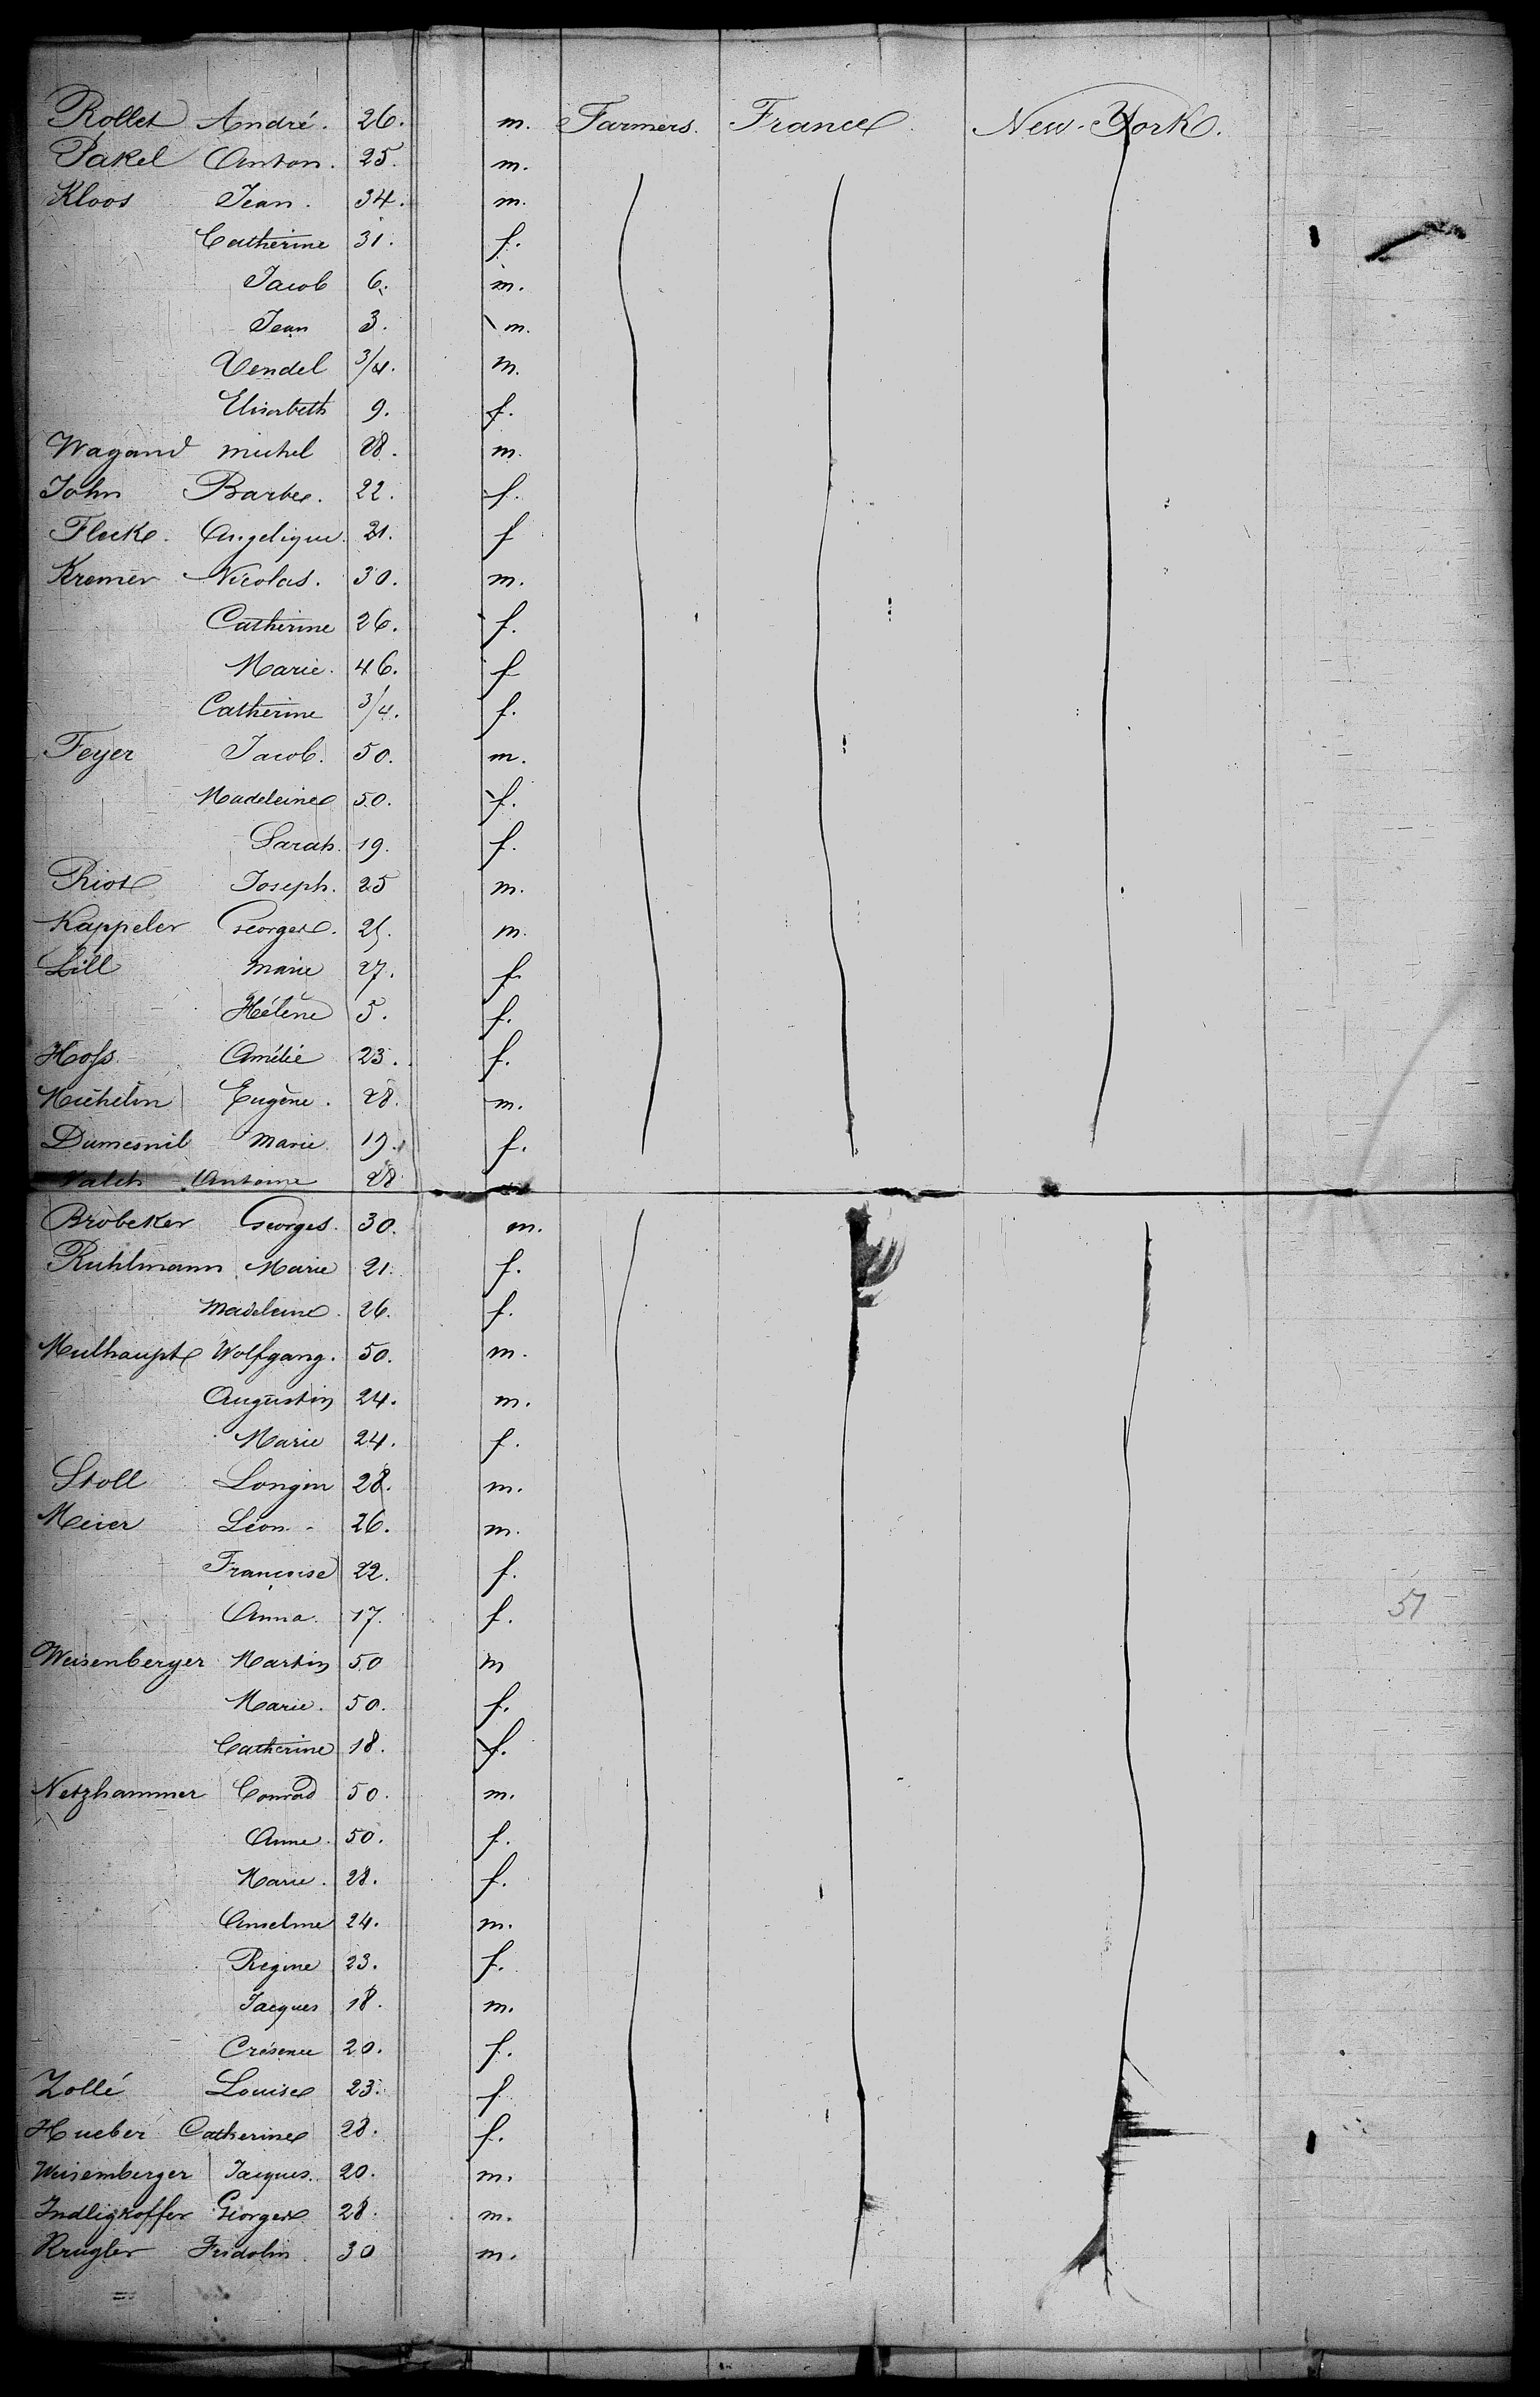 Rollet André. 26. m. Farmers. France New-York.
Pakel Anton. 25. m.
Kloos Jean. 34. m.
Catherine 31. f.
Jacob 6. m.
Jean 3. m.
Vendel 3/4. m.
Elisabeth 9. f.
Wagand michel 28. m.
John Barbe. 22. f.
Fleck. Angelique. 21. f
Kremer Nicolas. 30. m.
Catherine 26. f.
Marie. 46. f
Catherine 3/4. f.
Feyer Jacob. 50. m.
Madeleine 50. f.
Sarah. 19. f.
Riot Joseph. 25 m.
Kappeler Georges. 25. m.
Lill marie 27. f.
Hélène 5. f.
Hoſs Amélie 23. f.
Michelin Eugène. 28. m.
Dumesnil Marie 19. f.
Valch Antoine 28
Brobeker Georges. 30. m.
Ruhlmann Marie 21. f.
Madeleine. 26. f.
Mulhaupt Wolfgang. 50. m.
Augustin 24. m.
Marie 24. f.
Stoll Longin 28. m.
Meier Léon. 26. m.
Françoise 22. f.
Anna. 17. f.
Weisenberger Martin 50 m
Marie. 50. f.
Catherine 18. f.
Netzhammer Conrad 50. m.
Anne. 50. f.
Marie. 28. f.
Anselme 24. m.
Regine 23. f.
Jacques 18. m.
Crésence 20. f.
Zollé Louise 23. f
Hueber Catherine 28. f.
Weisemberger Jacques. 20. m.
Indligkoffer Georges 28. m.
Krugler Fridolin. 30 m.
51